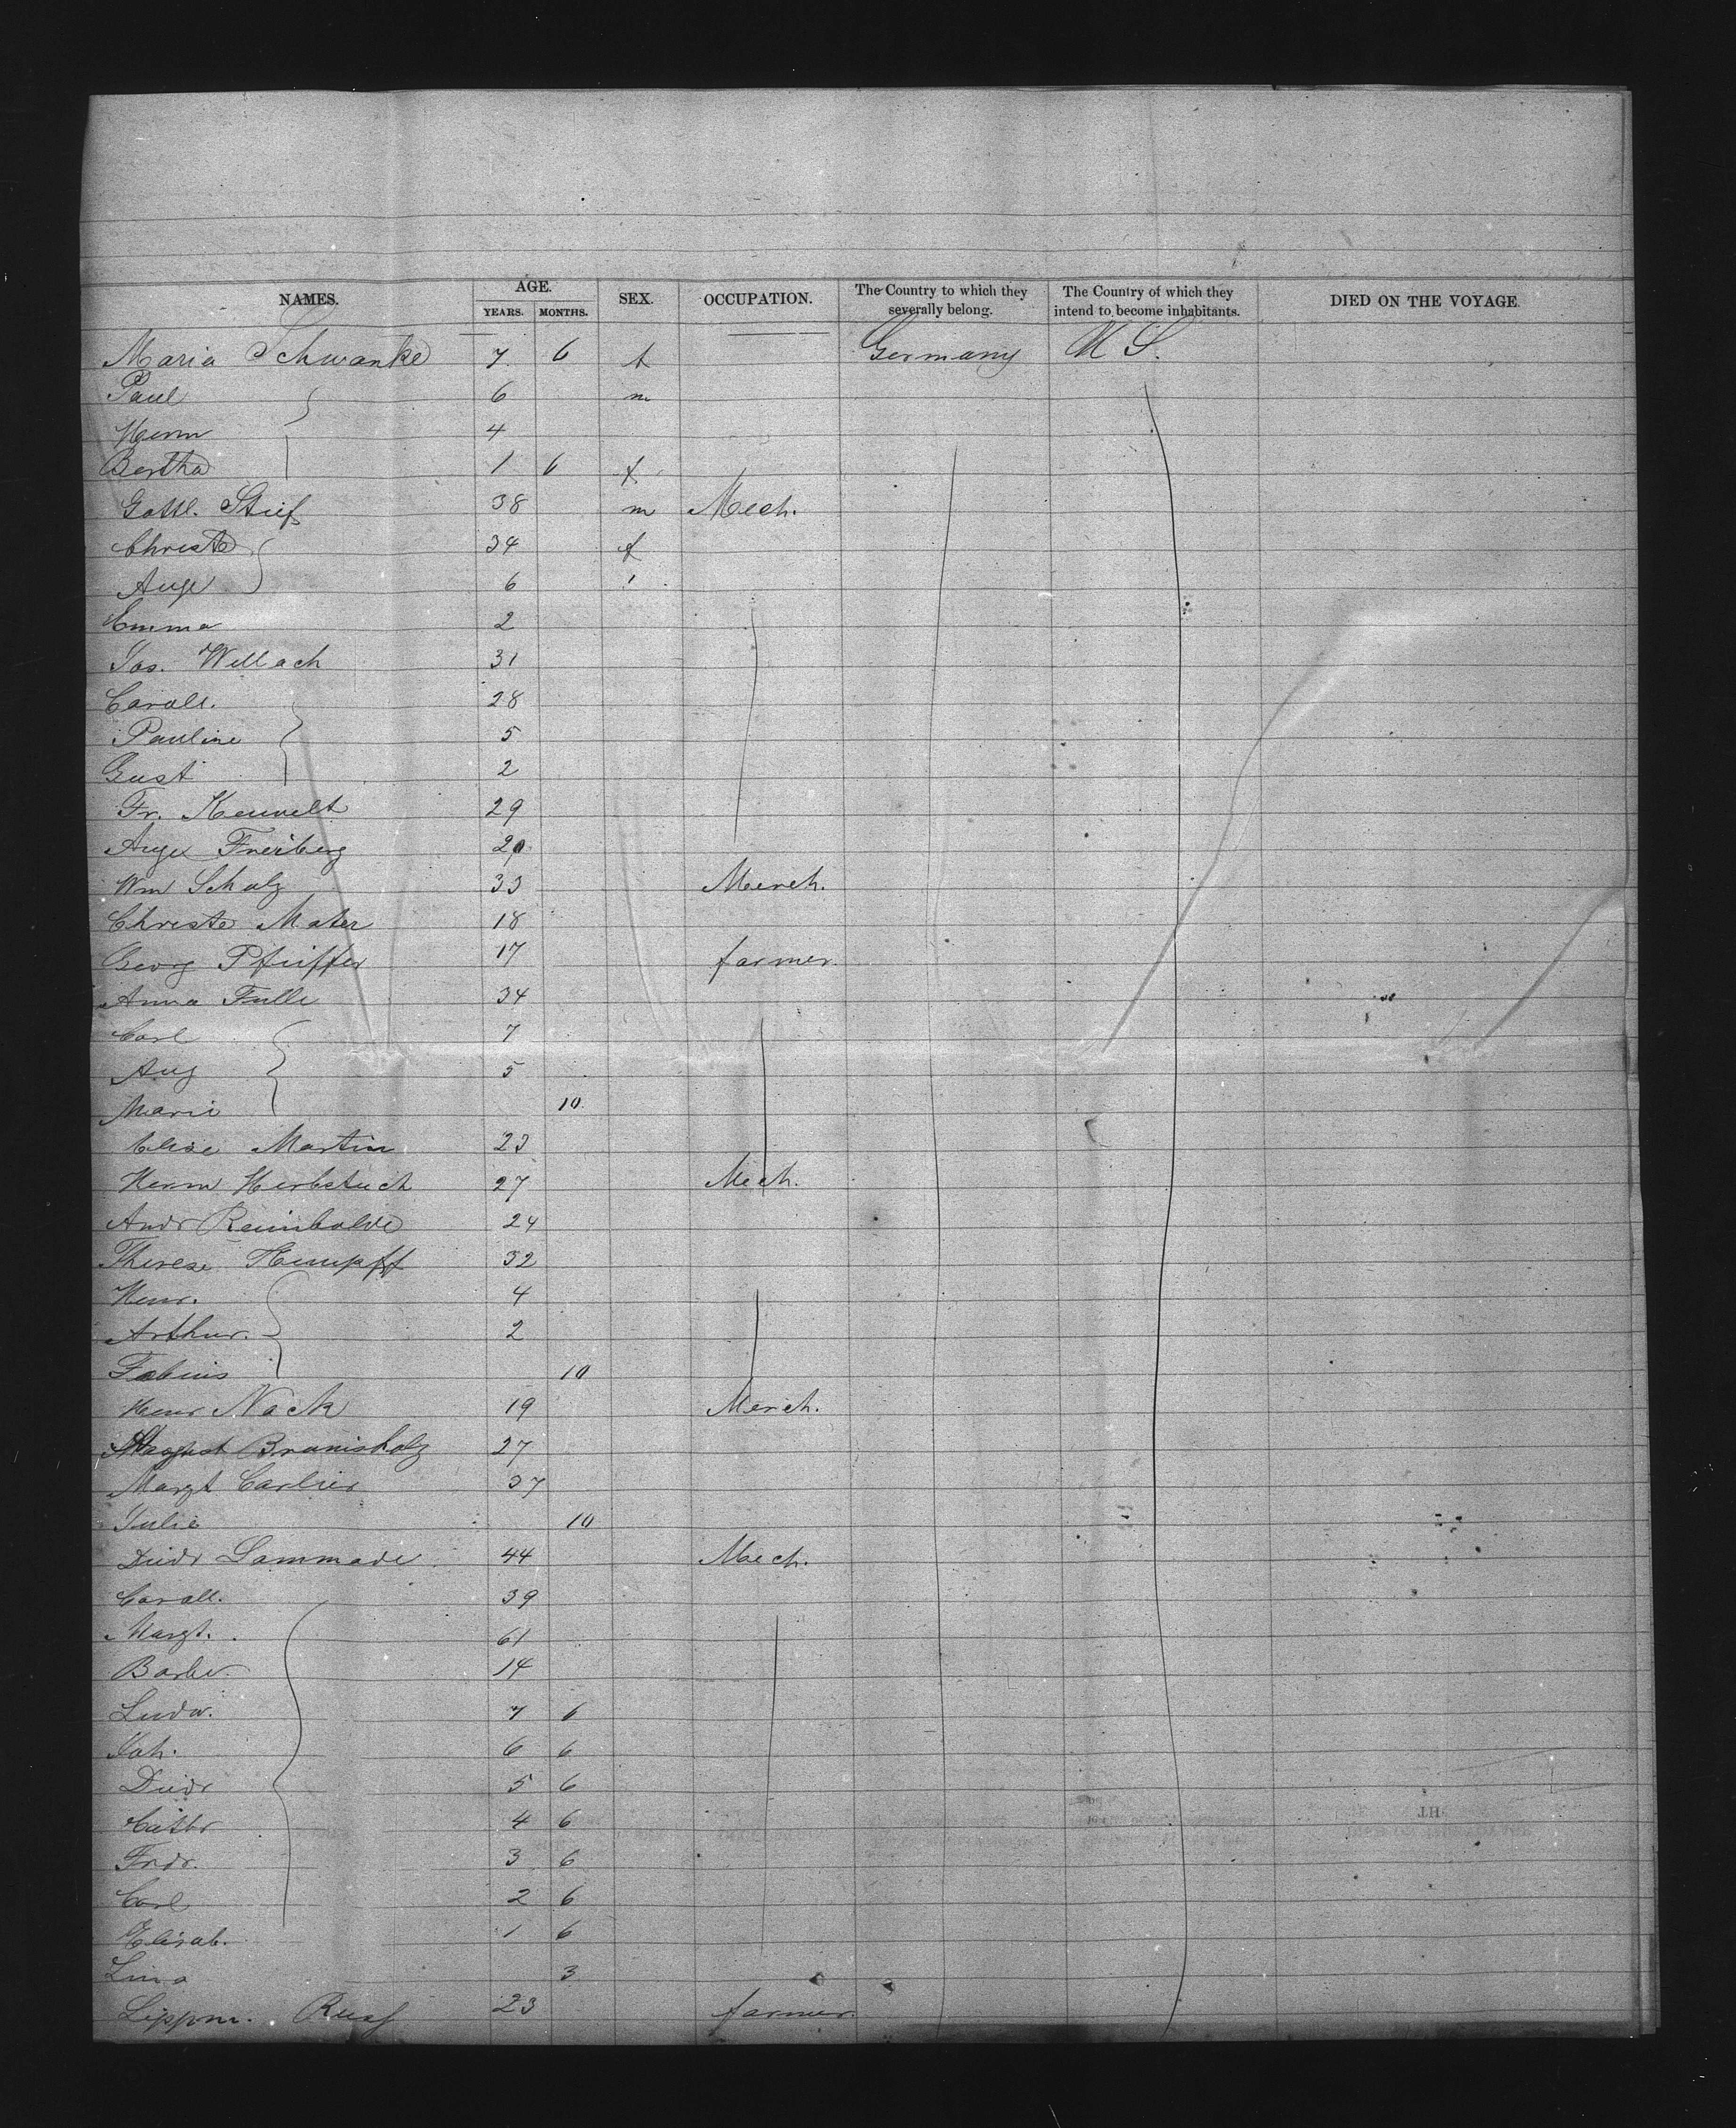 NAMES. AGE. SEX. OCCUPATION. The Country to which they severally belong. The Country of which they intend to become inhabitants. DIED ON THE VOYAGE.
YEARS. MONTHS.
Maria Schwanke 7 6 f Germany U S.
Paul 6 m
Herm 4
Bertha 1 6 f
Gottl. Stief 38 m Mech.
Christe 34 f
Auge 6 '
Emma 2
Jos. Wellach 31
Caroll. 28
Pauline 5
Gust 2
Fr. Keuvelt 29
Auge Freiberg 20
Wm Scholz 33 Merch.
Christe Mater 18
Georg Pfeiffer 17 farmer.
Anna Fulle 34
Carl 7
Aug 5
Marie 10
Elise Martin 23
Herm Herbstuch 27 Mech.
Andr Reimbolde 24
Therese Hempff 32
Henr. 4
Arthur. 2
Fabius 10
Henr Nack 19 Merch.
August Bramsholz 27
Margt Carlier 37
Julie 10
Diedr Lammade 44 Mech.
Caroll. 39
Margt. 61
Barbr. 14
Ludw. 7 6
Joh. 6 6
Diedr 5 6
Cathr 4 6
Fridr. 3 6
Carl 2 6
Elisab. 1 6
Lina 3
Lippm. Russ 23 farmer.